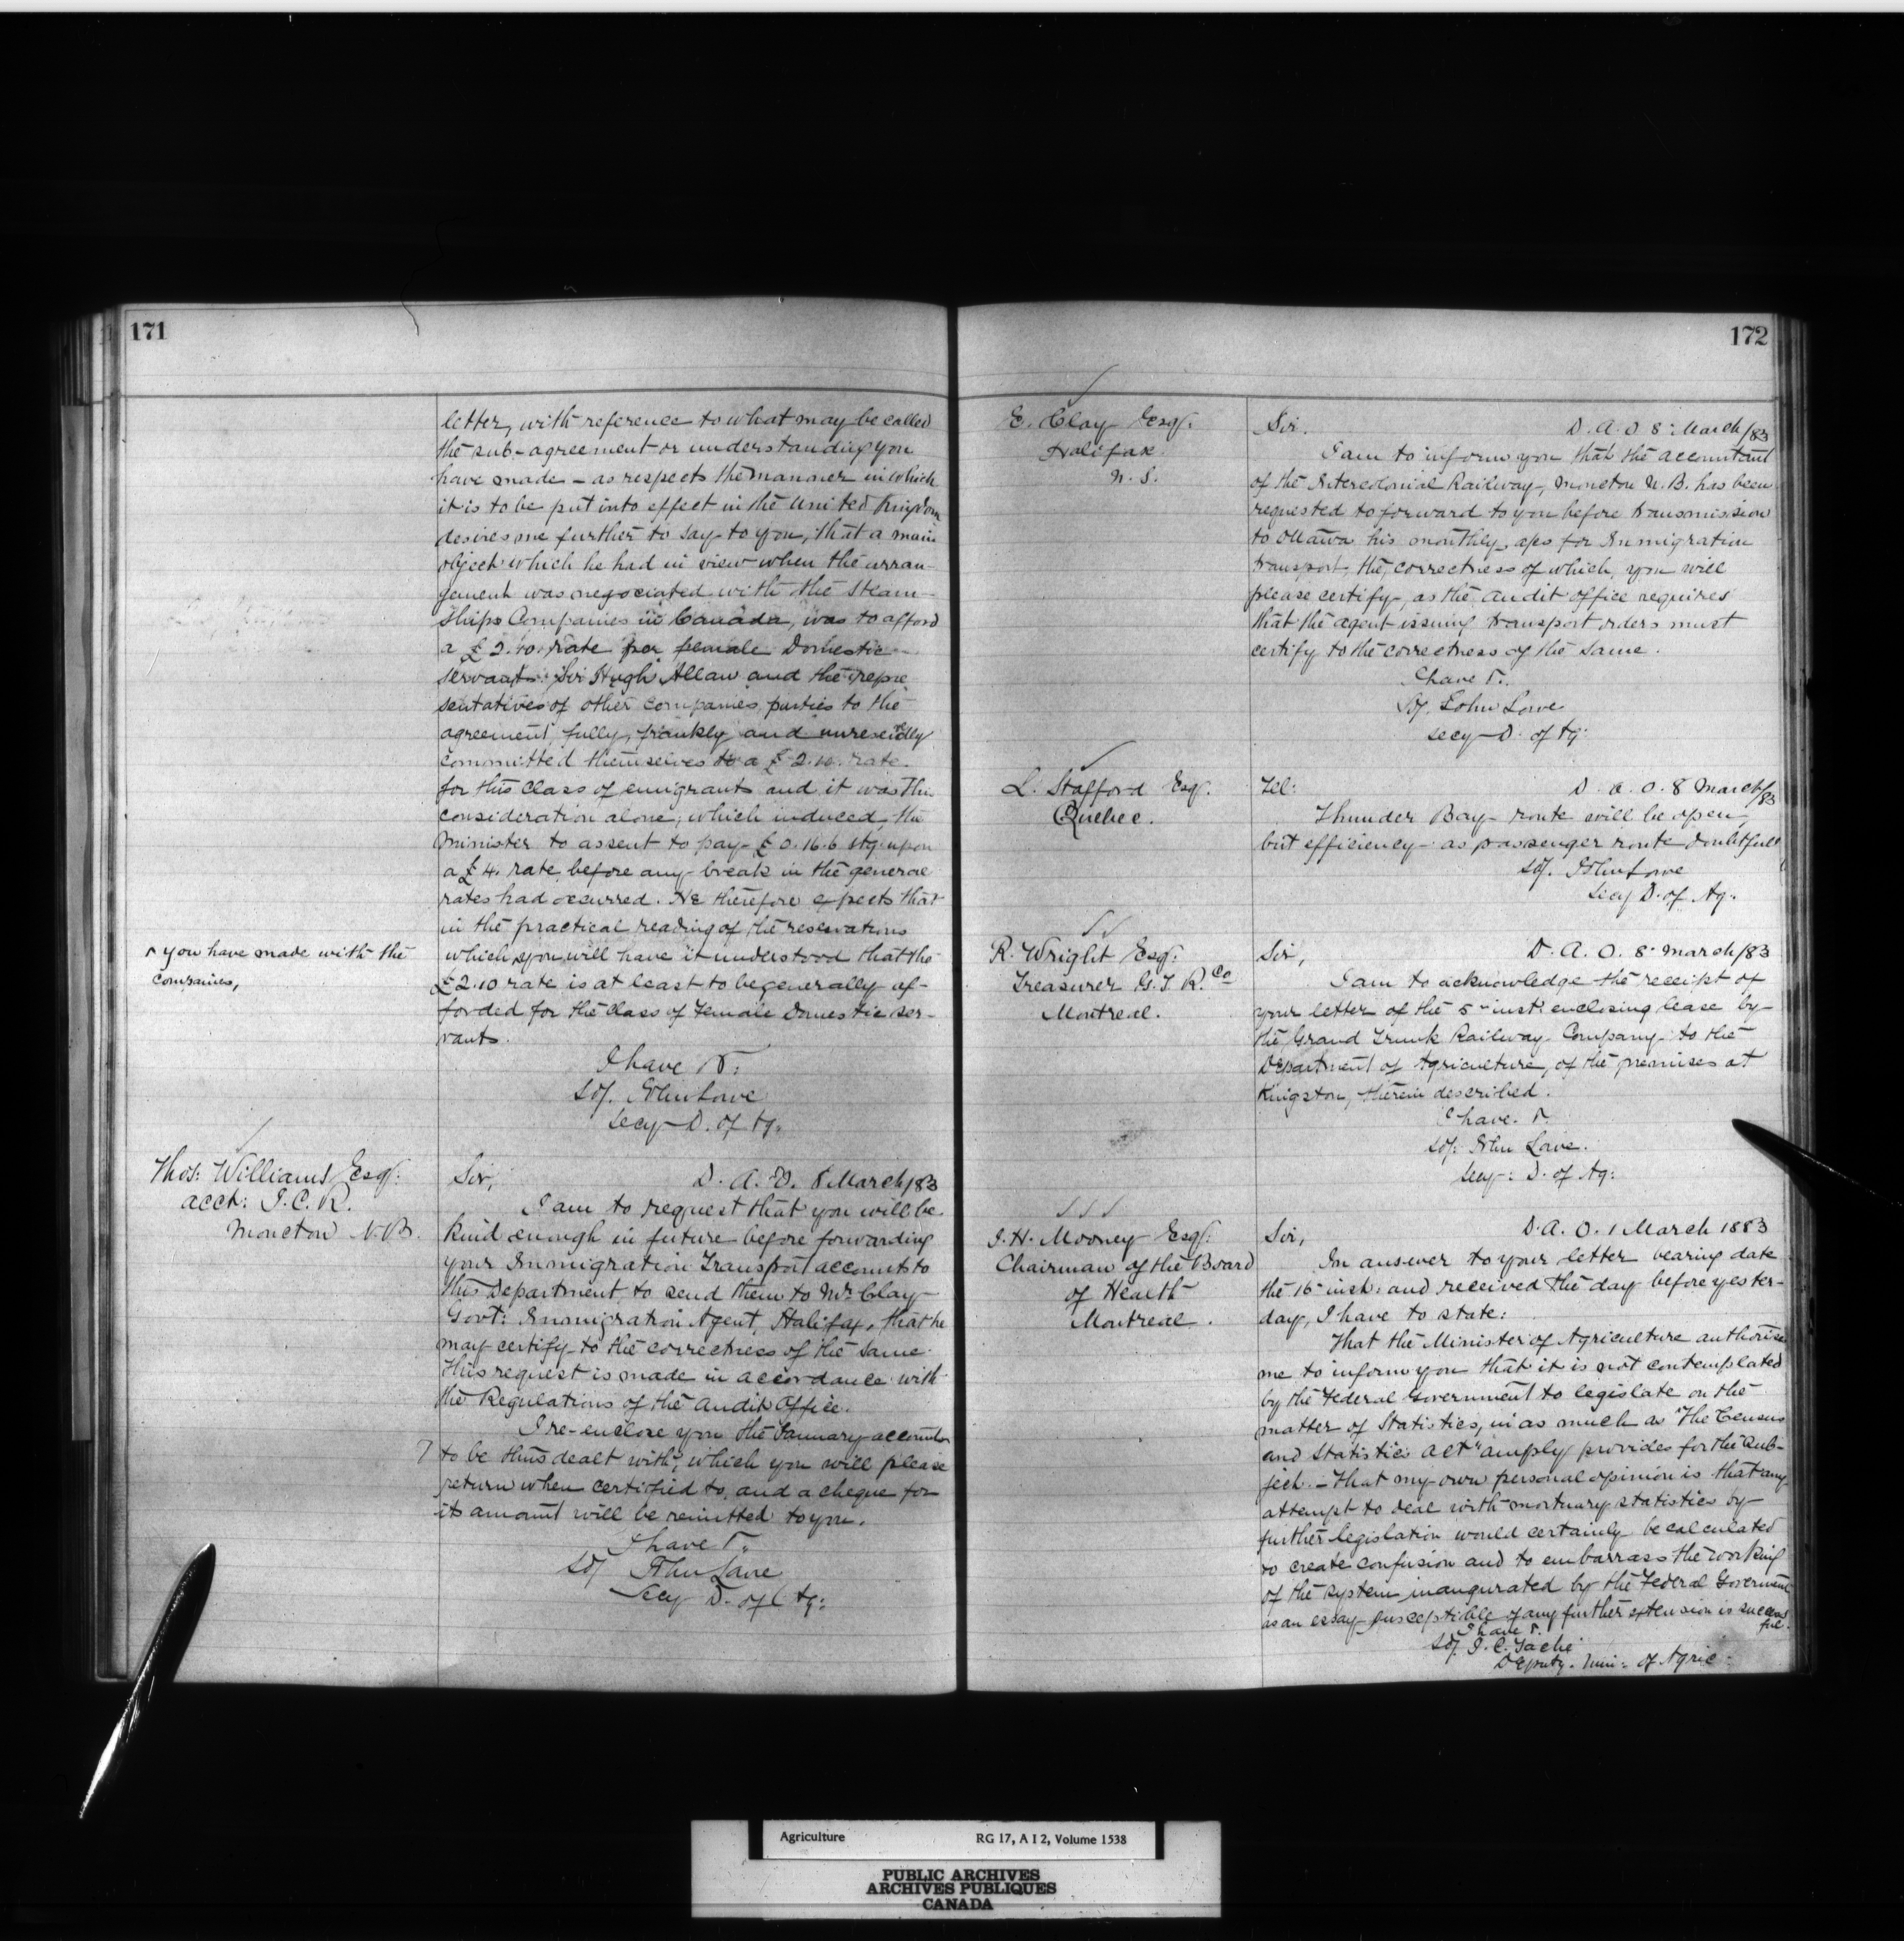 171
letter, with reference to what may be called
the sub-agreement or understanding you
have made – as respects the manner in which
it is to be put into effect in the United Kingdom
desires me further to say to you, that a main
object which he had in view when the arran-
gement was negociated with the Steam-
ships Companies in Canada, was to afford
a £2.10. rate per female Domestic
servant. Sir Hugh Allan and the repre
sentatives of other companies parties to the
agreement, fully, frankly and unreservedly
committed themselves to a £2.10. rate.
for this Class of emigrants and it was this
consideration alone, which induced, the
Minister to assent to pay £0.16.6 stg. upon
a £4. rate before any break in the general
rates had occurred. He therefore expects that
in the practical reading of the reservations
^ you have made with the
companies,
which ^ you will have it understood that the
£2.10 rate is at least to be generally af-
forded for the Class of Female Domestic ser-
vants.
I have &:
Sd/. John Lowe
Secy D. of Ag.
Thos: Williams Esq:
acct: I.C.R.
Moncton N.B.
Sir,
D. A. O. 8 March/83
I am to request that you will be
kind enough in future before forwarding
your Immigration Transport accounts to
this Department to send them to Mr Clay
Govt: Immigration Agent, Halifax, that he
may certify to the correctness of the same.
This request is made in accordance with
the Regulations of the Audit Office.
I re-enclose you the January accounts
to be thus dealt with, which you will please
return when certified to, and a cheque for
its amount will be remitted to you.
I have &.
Sd/ John Lowe
Secy D. of Ag:
172
E. Clay Esq.
Halifax
N. S.
Sir.
D. A. O 8: March/83
I am to inform you that the accountant
of the Intercolonial Railway, Moncton N.B. has been
requested to forward to you before transmission
to Ottawa his monthly a/cs for Immigration
transport, the correctness of which, you will
please certify, as the Audit Office requires
that the agent issuing transport orders must
certify to the correctness of the same.
I have &.
Sd/. John Lowe
Secy D. of Ag:
L. Stafford Esq.
Quebec.
Tel:
D. A. O. 8 March/83
Thunder Bay route will be open,
but efficiency as passenger route doubtful
Sd/. John Lowe
Secy D. of Ag.
R. Wright Esq:
Treasurer G.T.R. Co
Montreal.
Sir,
D. A. O. 8: March/83
I am to acknowledge the receipt of
your letter of the 5" inst: enclosing lease by
the Grand Trunk Railway Company to the
Department of Agriculture, of the premises at
Kingston, therein described.
I have. &.
Sd/: John Lowe.
Secy: D. of Ag:
J. H. Mooney Esq:
Chairman of the Board
of Health
Montreal.
Sir,
D. A. O. 1 March 1883
In answer to your letter bearing date
the 16 inst: and received the day before yester-
day, I have to state:
That the Minister of Agriculture authorise
me to inform you that it is not contemplated
by the Federal Government to legislate on the
matter of Statistics, in as much as "The Census
and Statistics Act" amply provides for the sub-
ject. – That my own personal opinion is that any
attempt to deal with mortuary statistics by
further legislation would certainly be calculated
to create confusion and to embarrass the working
of the system inaugurated by the Federal Goverment
as an essay susceptible of any further extension is success
ful.
I have &.
Sd/. J. C. Taché
Deputy. Min: of Agric
Agriculture RG 17, A I 2, Volume 1538
PUBLIC ARCHIVES
ARCHIVES PUBLIQUES
CANADA